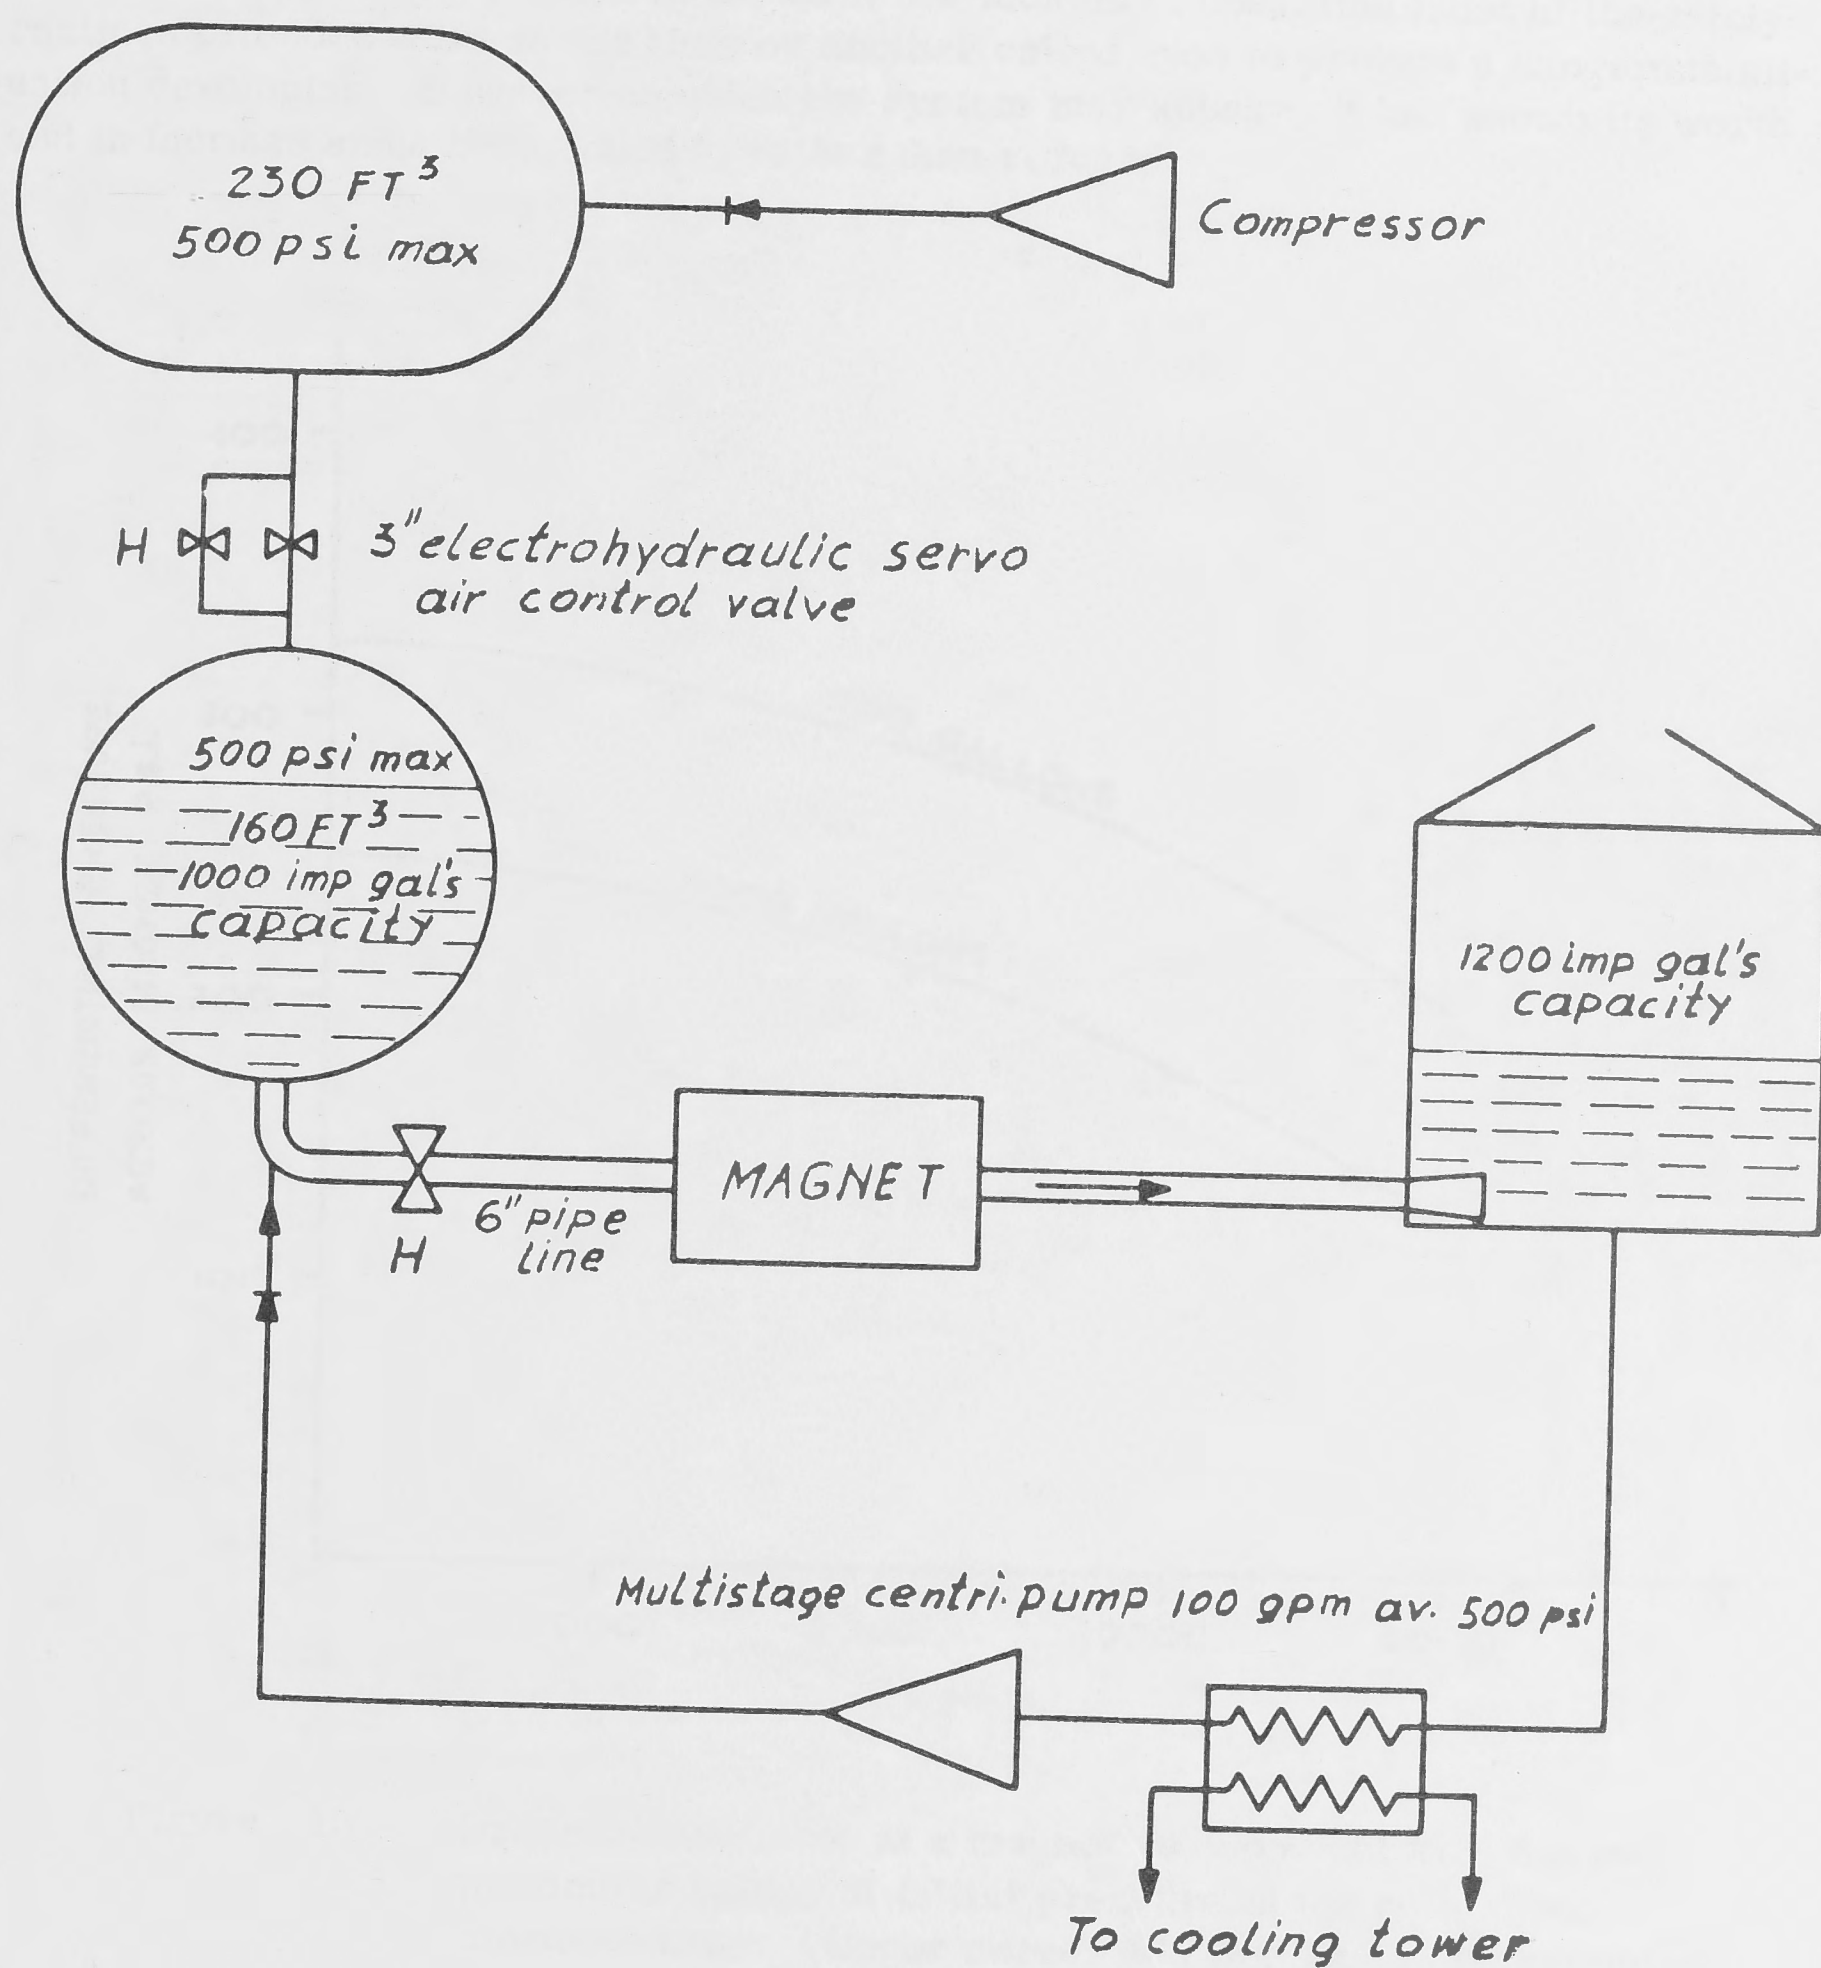 230 FT³
500 psi max
Compressor
H
3" electrohydraulic servo
air control valve
500 psi max
160 FT³
1000 imp gal's
capacity
1200 imp gal's
capacity
MAGNET
6" pipe
line
H
Multistage centri. pump 100 gpm av. 500 psi
To cooling tower